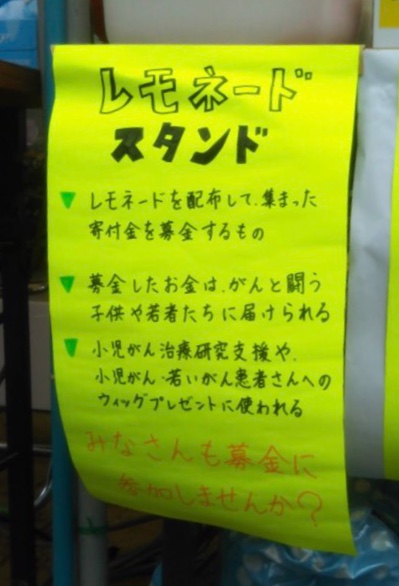 レモネード
スタンド
▼ レモネードを配布して、集まった
寄付金を募金するもの
▼ 募金したお金は、がんと闘う
子供や若者たちに届けられる
▼ 小児がん治療研究支援や、
小児がん・若いがん患者さんへの
ウィッグプレゼントに使われる
みなさんも募金に
参加しませんか?